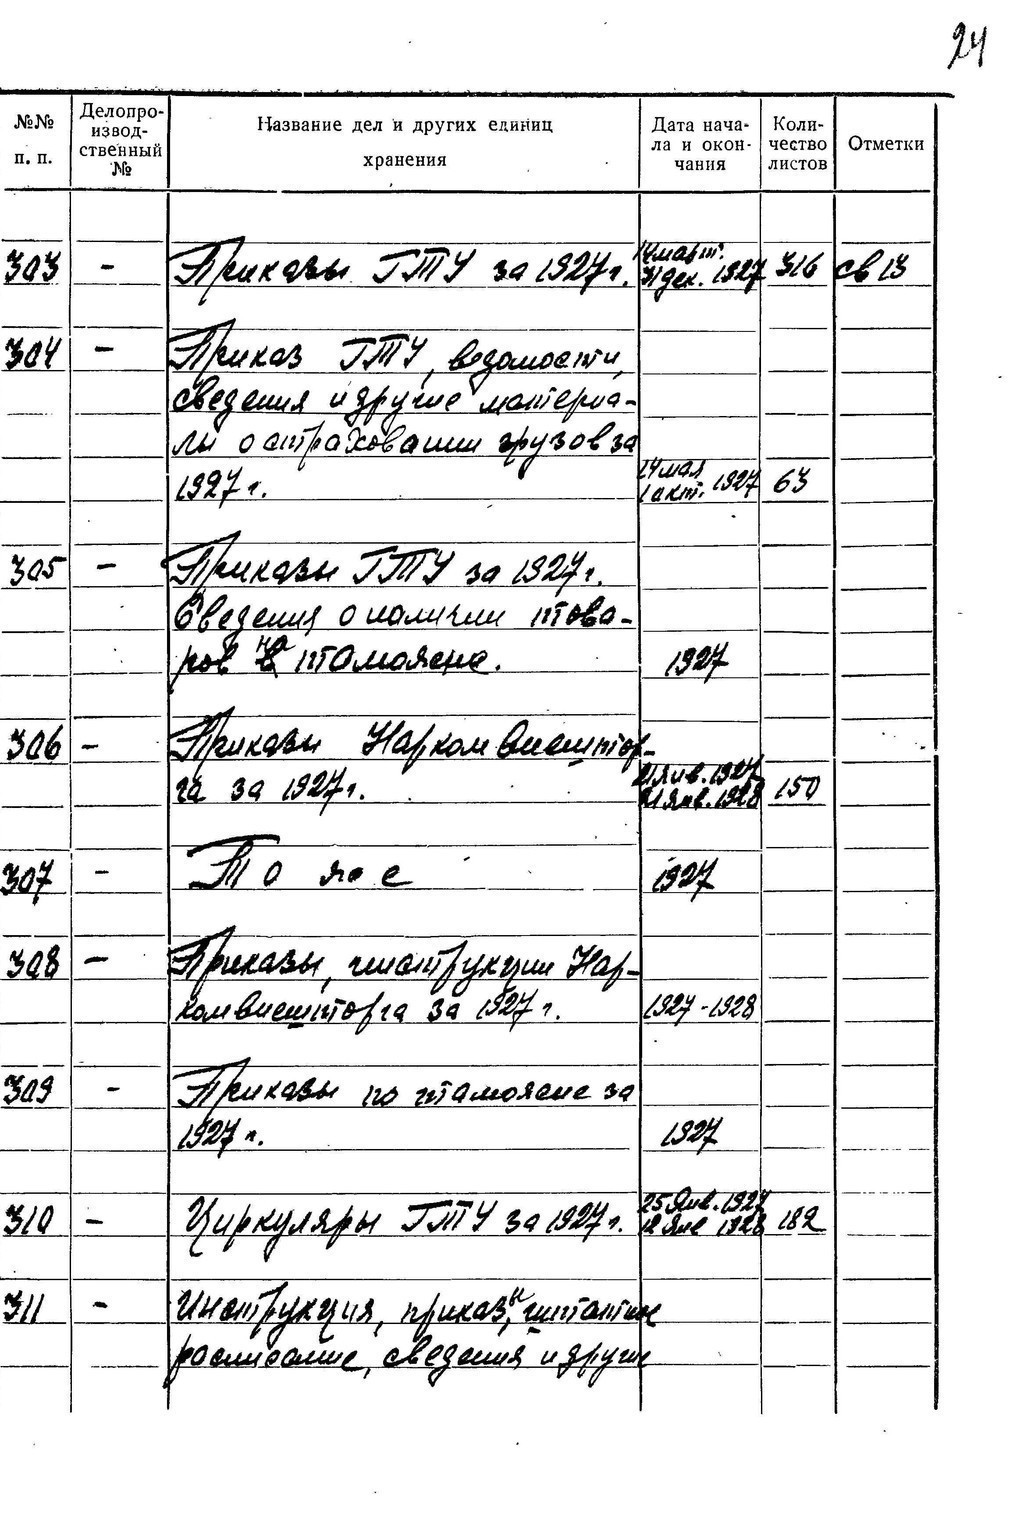 24
№№ п. п.
Делопро-
извод-
ственный
№
Название дел и других единиц
хранения
Дата нача-
ла и окон-
чания
Коли-
чество
листов
Отметки
303 - Приказы ГТУ за 1927 г. 14 март. 31 дек. 1927 316 св 13
304 - Приказ ГТУ, ведомости,
сведения и другие материа-
лы о страховании грузов за
1927 г. 14 мая 1 окт. 1927 63
305 - Приказы ГТУ за 1927 г.
Сведения о наличии това-
ров на таможне. 1927
306 - Приказы Наркомвнештор-
га за 1927 г. 21 янв. 1927 21 янв. 1928 150
307 - То же 1927
308 - Приказы, инструкции Нар-
комвнешторга за 1927 г. 1927-1928
309 - Приказы по таможне за
1927 г. 1927
310 - Циркуляры ГТУ за 1927 г. 25 янв. 1927 12 янв 1928 182
311 - Инструкция, приказы, штатное
расписание, сведения и другие